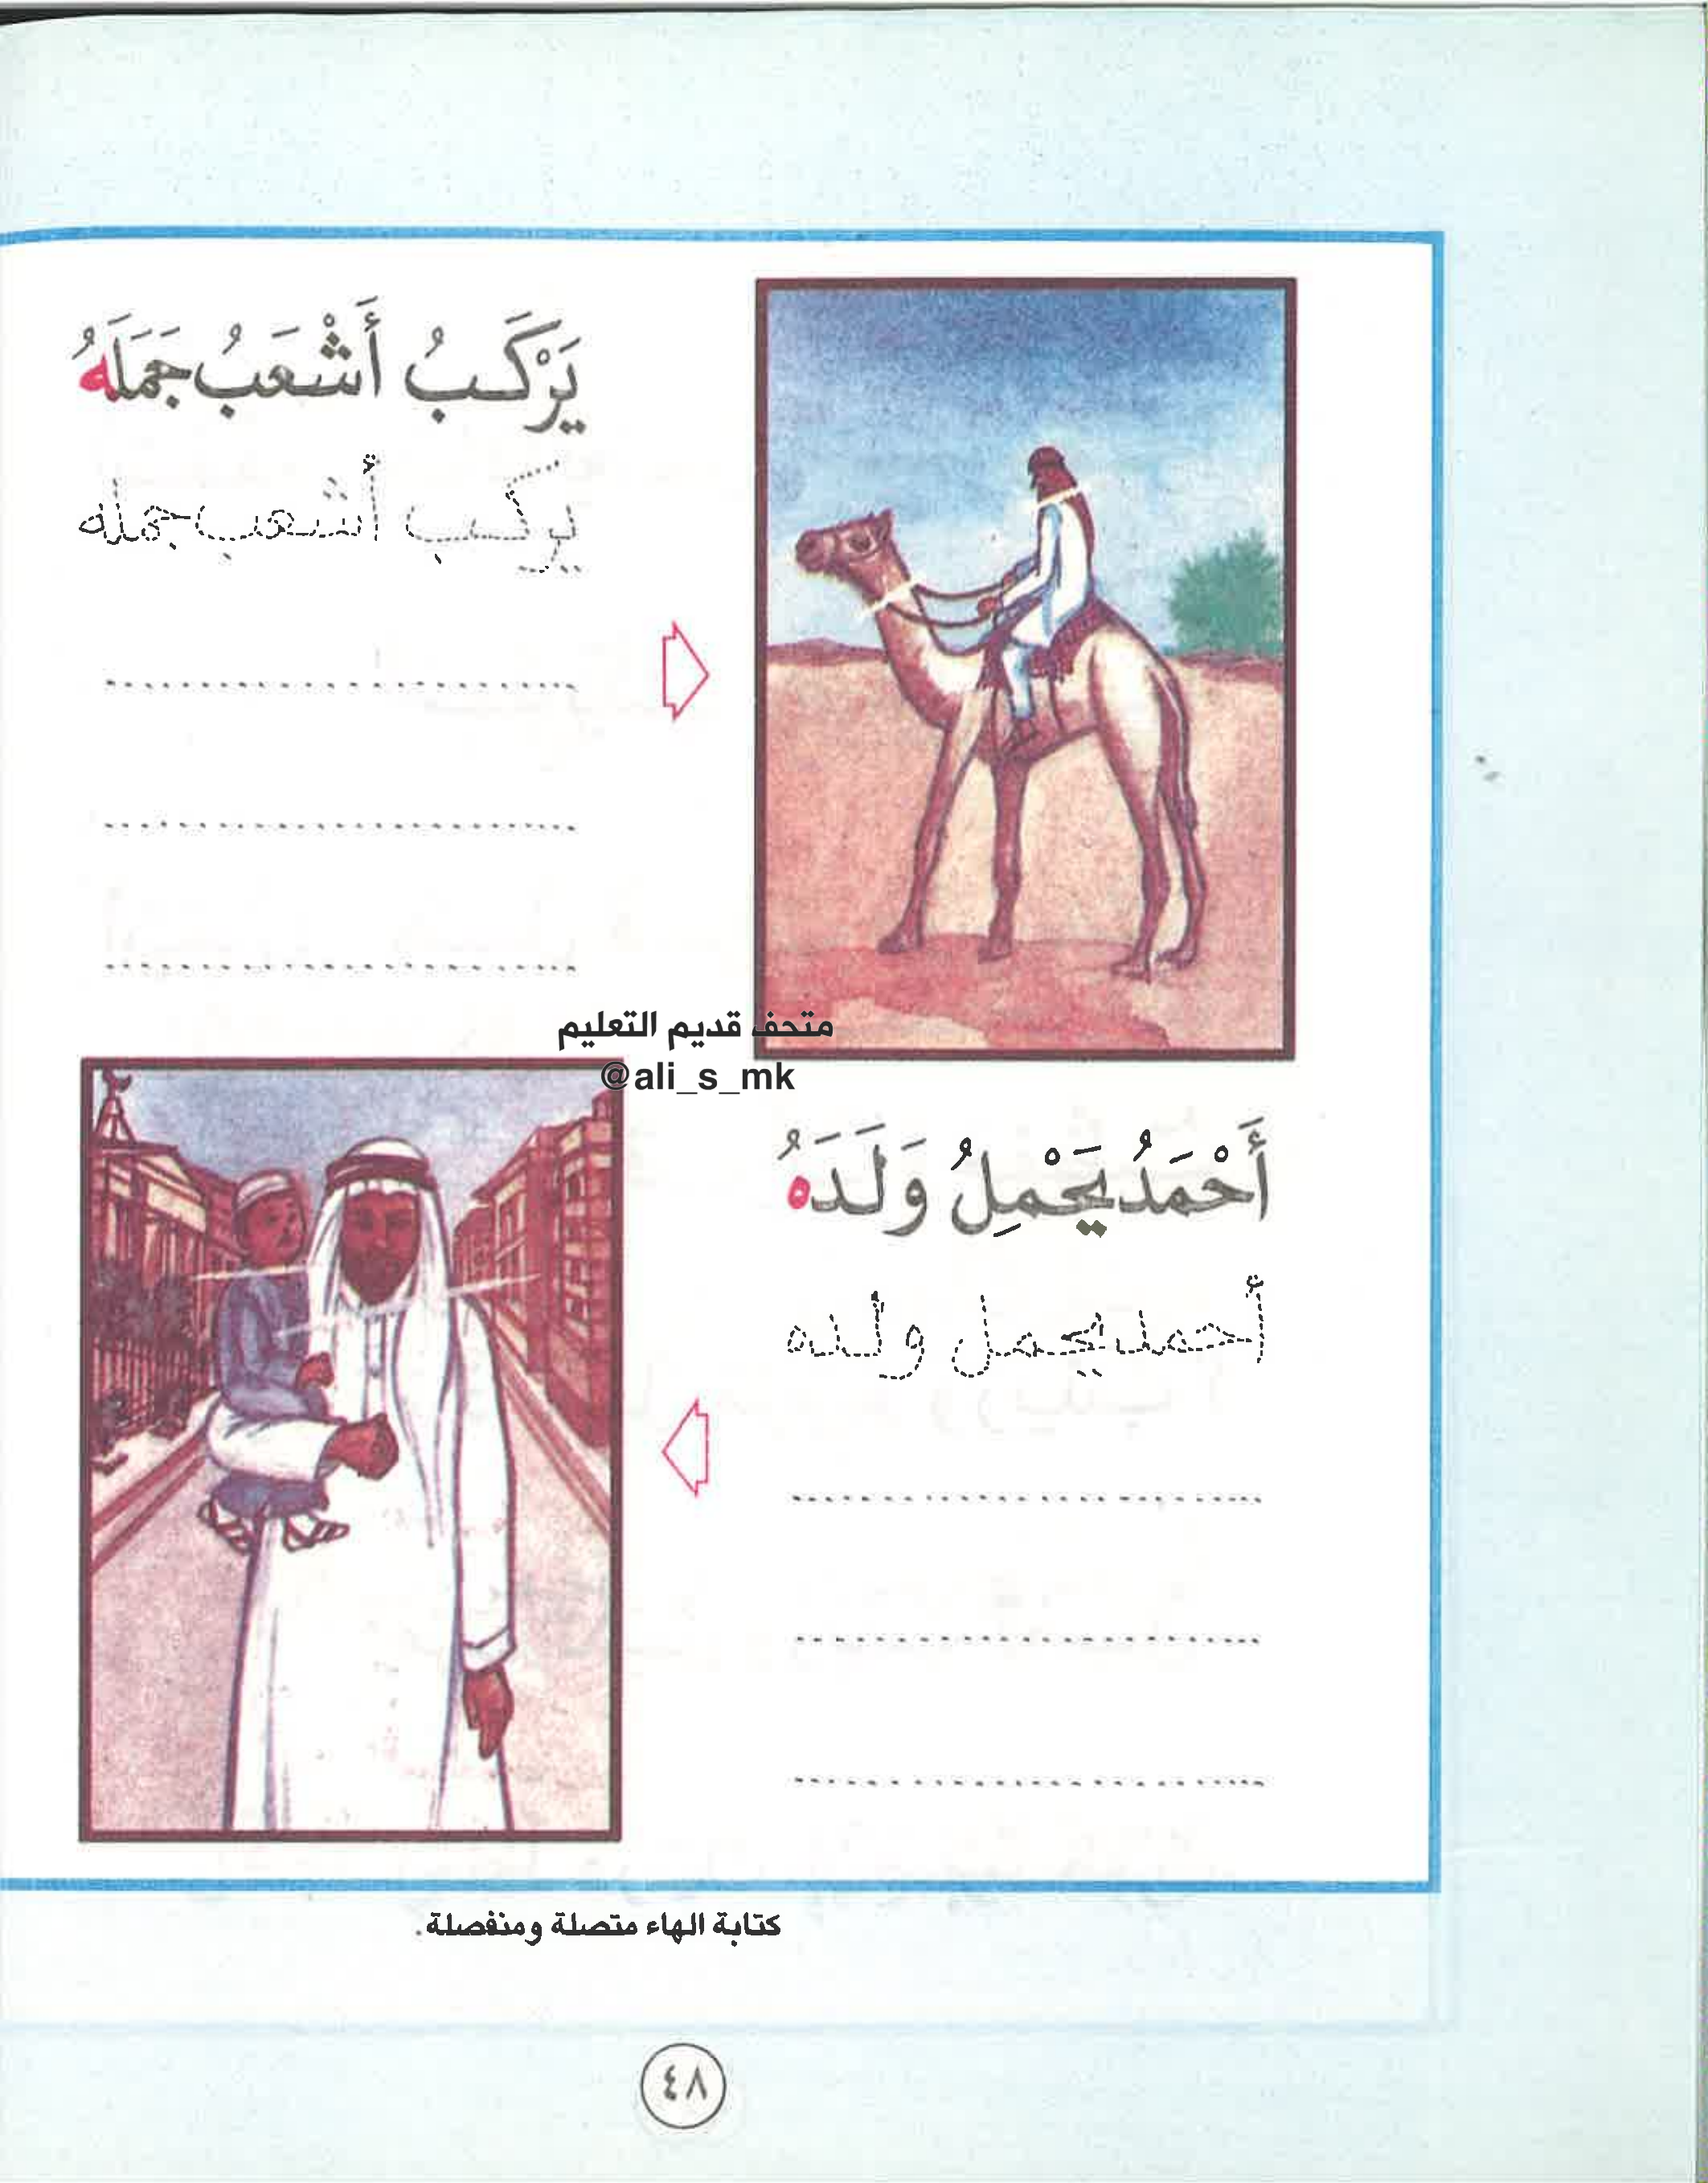 يَرْكَبُ أَشْعَبُ جَمَلَهُ
يركب أشعب جمله
متحف قديم التعليم
@ali_s_mk
أَحْمَدُ يَحْمِلُ وَلَدَهُ
أحمد يحمل ولده
كتابة الهاء متصلة ومنفصلة.
٤٨